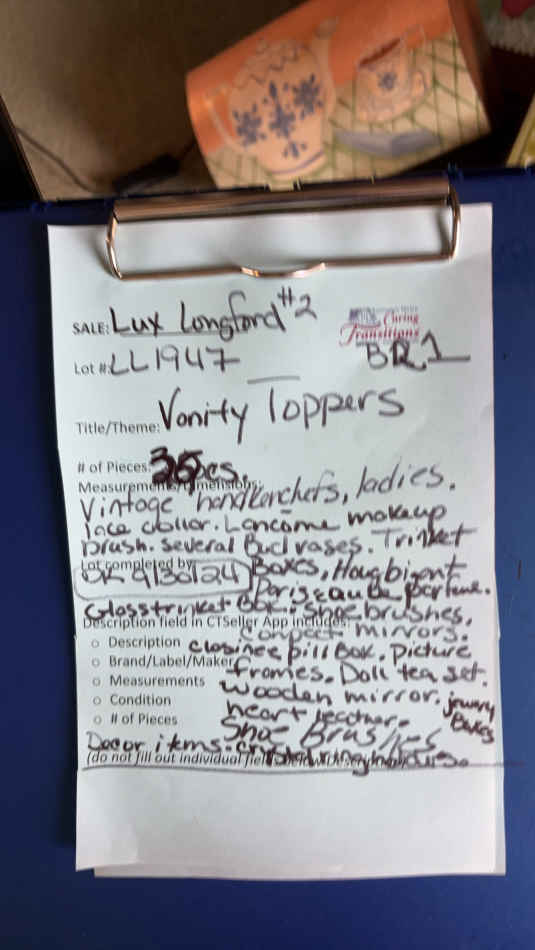 SALE: Lux Longford #2
Caring Transitions
Lot #: LL1947
BR1
Title/Theme: Vanity Toppers
# of Pieces: 35pcs.
Measurements/Dimensions:
Vintage handkerchefs, ladies.
lace collar. Lancome makeup
brush. Several Bud vases. Trinket
Lot completed by:
DK 9/30/24 Boxes, Houbigent
Paris eau de parfume.
Glosstrinket Box. Shoe brushes.
Description field in CTSeller App includes:
compect mirrors.
o Description
closinee pill Box. Picture
o Brand/Label/Maker
frames. Doll tea set.
o Measurements
wooden mirror. jewery
Boxes
o Condition
heart leather.
o # of Pieces
Shoe Brushes
Decor items. crystal ring
(do not fill out individual fields